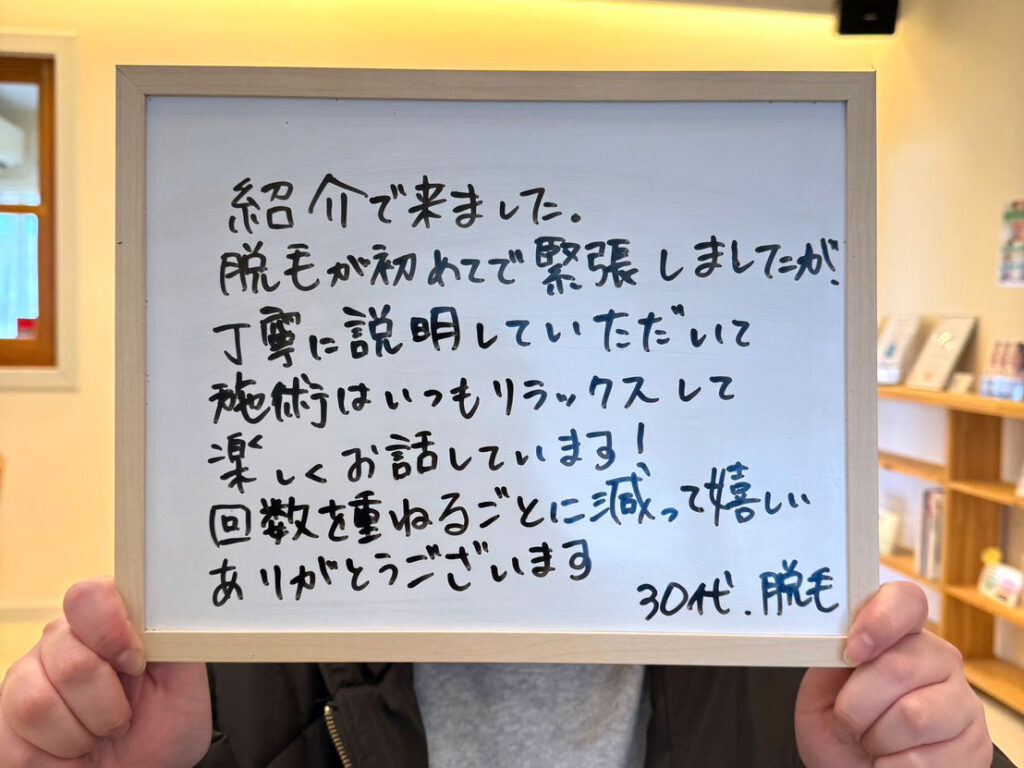 紹介で来ました。
脱毛が初めてで緊張しましたが、
丁寧に説明していただいて
施術はいつもリラックスして
楽しくお話しています!
回数を重ねるごとに減って嬉しい
ありがとうございます
30代.脱毛